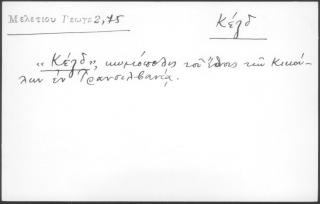 Μελετίου Γεωγρ 2,75
Κέζδ
"Κέζδ", κωμόπολις τοῦ Ἔθνους τῶν Κικού-
λων ἐν Τρανσιλβανίᾳ.